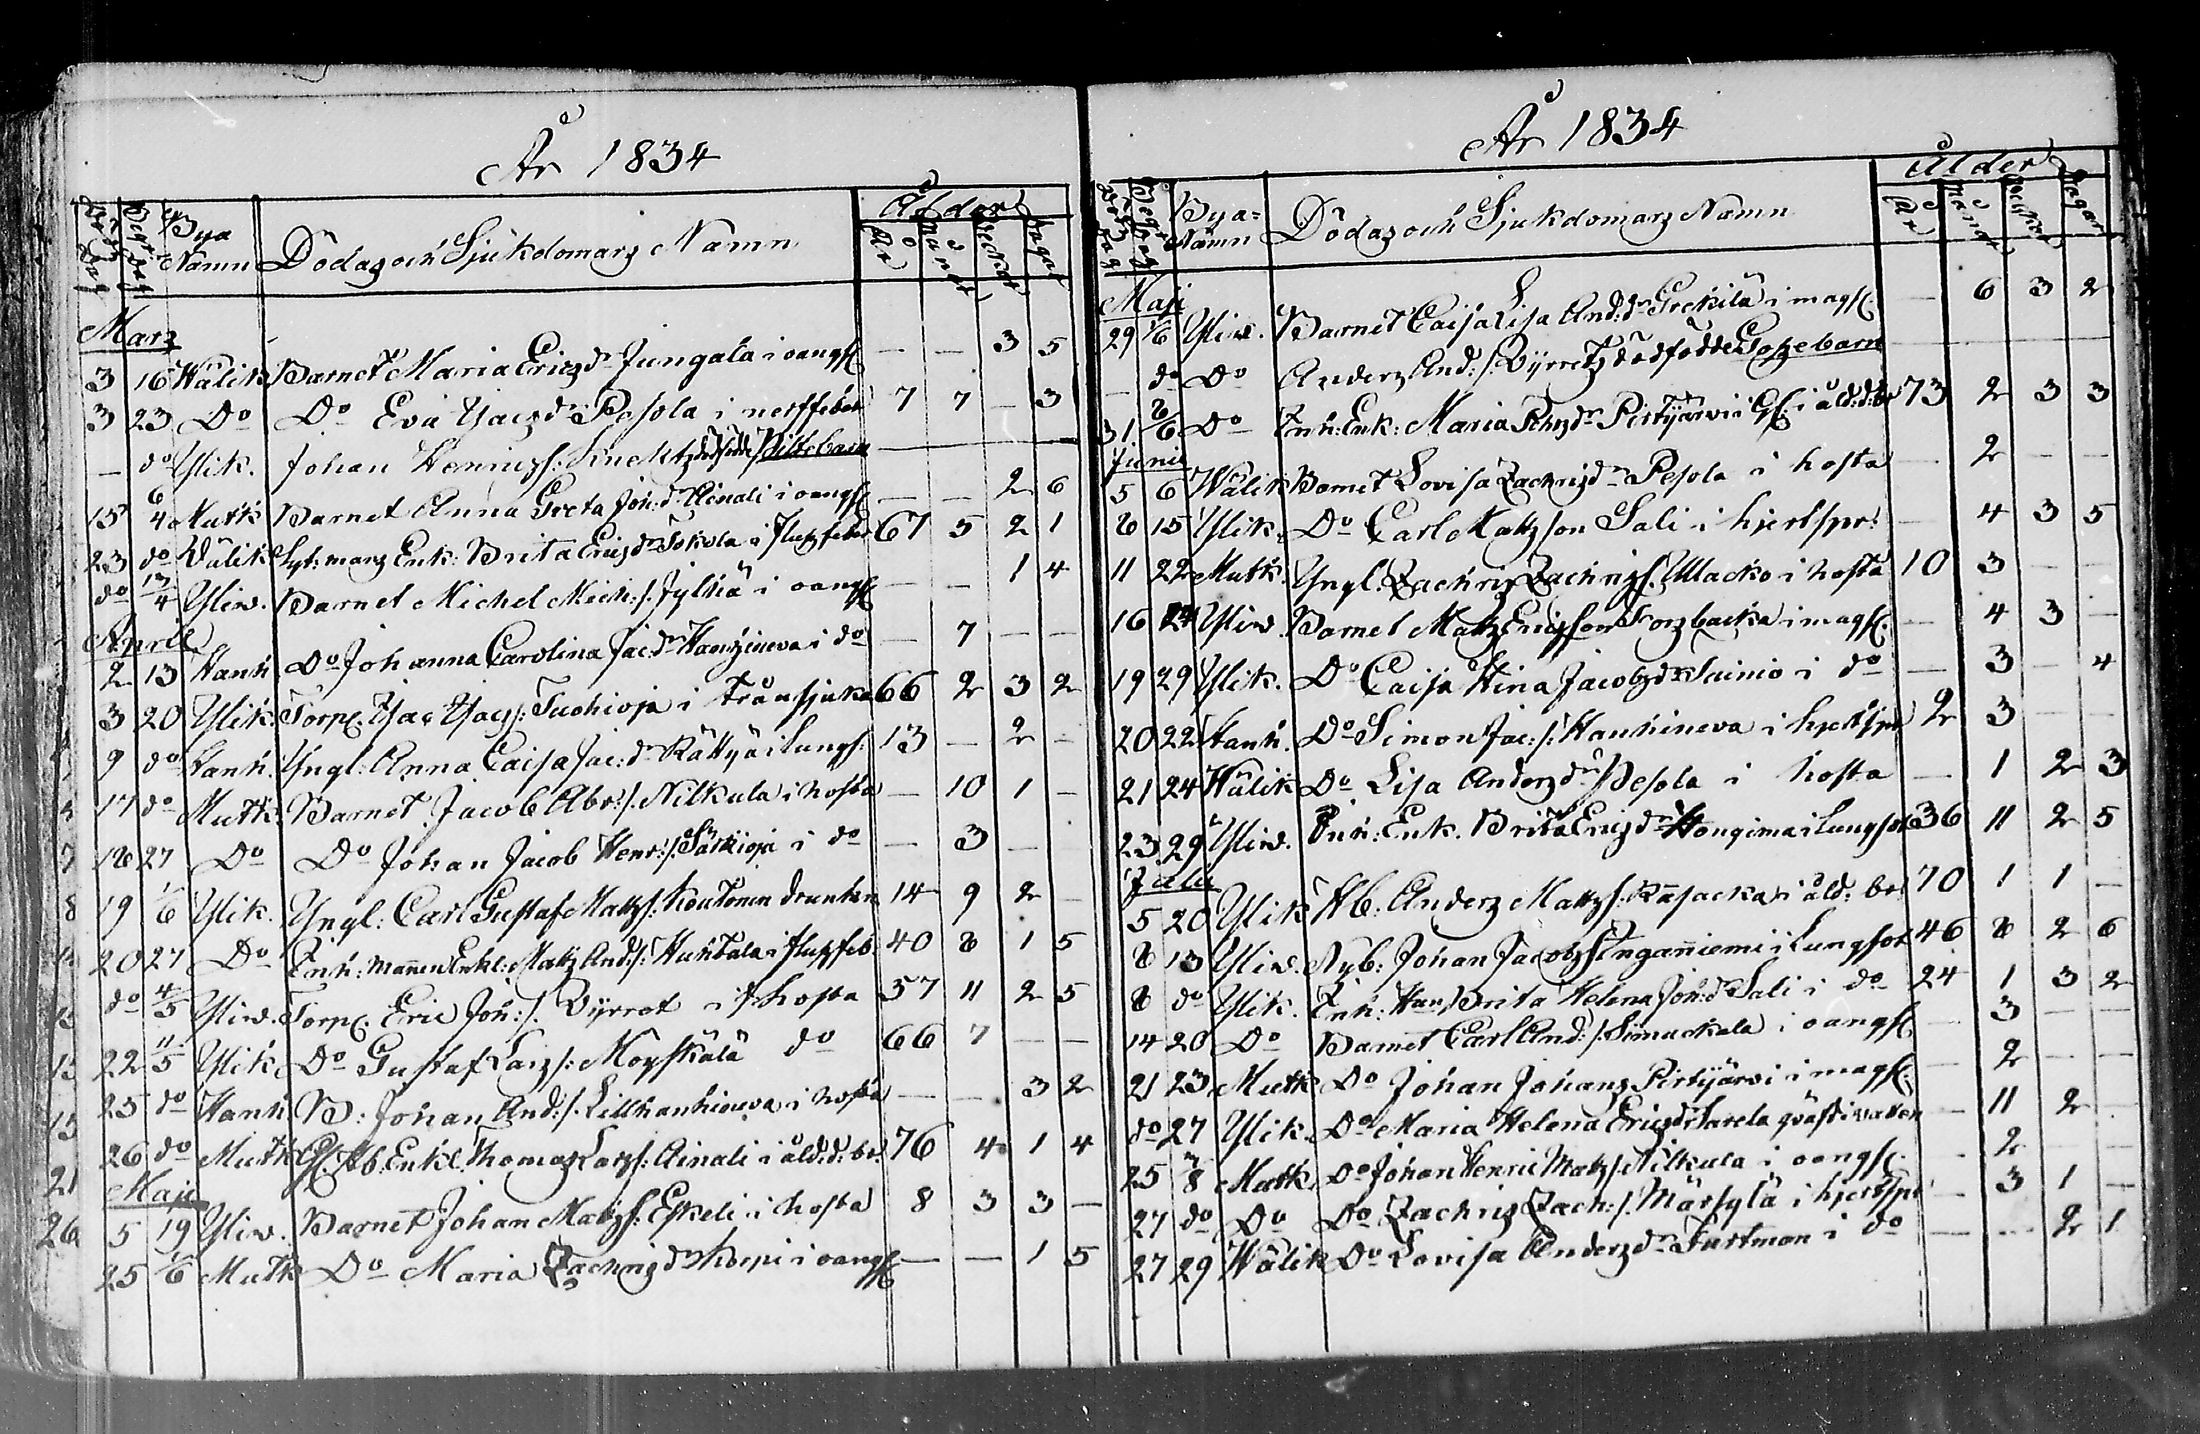 År 1834
Döds dag Begr: dag Bya Namn Dödas och Sjukdomars Namn Ålder År Månad Veckor Dagar
Mars
3 16 Wälik Barnet Maria Ericsdr Jungala i oangf. — — 3 5
3 23 Do Do Eva Isacsdr Pesola i nerffeber 7 7 — 3
— do Ylik. Johan Henrics: dödfödde Piltebarn
15 6/4 Mutk Barnet Anna Greta Joh:dr Ainali i oangf — — 2 6
23 do Wälik Enk: Brita Ericsdr Jokela i 67 5 2 1
do 13/4 Yliw. Barnet Michel Mich:s. Jylhä i oangf — — 1 4
April
2 13 Hanh Do Johanna Carolina Jac:dr Hanhineva i do — 7 — —
3 20 Ylik. Torp. Isac Isacs: Tuohioja i 66 2 3 2
9 do Hanh. Yngl: Anna Caisa Jac:dr Rättyä i Lungs: 13 — 2 —
17 do Mutk. Barnet Jacob Abr:s. Nilkula i hosta — 10 1 —
18 27 Do Do Johan Jacob Henr:s. Särkioja i do — 3 —
19 1/6 Ylik. Yngl: Carl Gustaf Matts: Koutonen drunken 14 9 2 —
20 27 Do Inh: Mannen Enkl: Matts And:s. Huhtala i 40 8 1 5
do 4/5 Yliw. Torp. Eric Joh:s. Pyrrot i hosta 57 11 2 5
22 11/5 Ylik. Do Gustaf Lars: Moyskälä do 66 7 — —
25 do Hanh B: Johan And:s. Lillhanhineva i hosta — — 3 2
26 do Mutk Enkl. Thomas Lars: Ainali i åld:d: br: 76 4 1 4
Maji
5 19 Yliw. Barnet Johan Matts: Eskeli i hosta 8 3 3 —
25 1/6 Mutk Do Maria Zachrisdr Korpi i oangf — — 1 5
År 1834
Döds dag Begr: dag Bya= Namn Dödas och Sjukdomars Namn Ålder År Månad Veckor Dagar
Maji
29 1/6 Yliw. Barnet Caisa Lisa And:dr Grekilä i magf. — 6 3 2
— do Do Anders And:s. Pyrrets dödfödde Gossebarn
31 8/6 Do Inh: Enk: Maria Pirttijärvi i åld:d:br 73 2 3 3
Junii
5 6 Wälik Barnet Lovisa Zachrisdr Pesola i hosta — 2 — —
8 15 Ylik. Do Carl Mattsson Sali i hjertspr: — 4 3 5
11 22 Mutk. Yngl. Zachris Zachriss. Ullacko i hosta 10 3 — —
16 24 Yliw. Barnet Matts Ericsson Forsbacka i magf. — 4 3 —
19 29 Ylik. Do Caisa Stina Jacobsdr Sainio i do — 3 — 4
20 22 Hanh. Do Simon Jac:s: Hanhineva i hjertspr 2 3 — —
21 24 Wälik Do Lisa Andersdr Pesola i hosta — 1 2 3
23 29 Yliw. Inh: Enk. Brita Ericsdr Hongima i Lungsot 36 11 2 5
Julii
5 20 Ylik Hb: Anders Matts: Räsacka i åld: br: 70 1 1 —
8 13 Yliw. Nyb: Johan Jacobss Inganniemi i Lungsot 46 8 2 6
8 do Ylik. Inh: Hu: Brita Helena Joh:dr Sali i do 24 1 3 2
14 20 Do Barnet Carl And:s. Simuckala i oangf. — 3 — —
21 23 Mutk Do Johan Johans Pirttijärvi i magf. — 2 — —
do 27 Ylik. Do Maria Helena Ericsdr Sarela qväfd i vatten — 11 2 —
25 3/8 Mutk. Do Johan Henric Matts: Nilkula i oangf. — 2 — —
27 do Do Do Zachris Zach:s. Märsylä i hjertspr — 3 1 —
27 29 Wälik Do Lovisa Andersdr Furtman i do — — 2 1